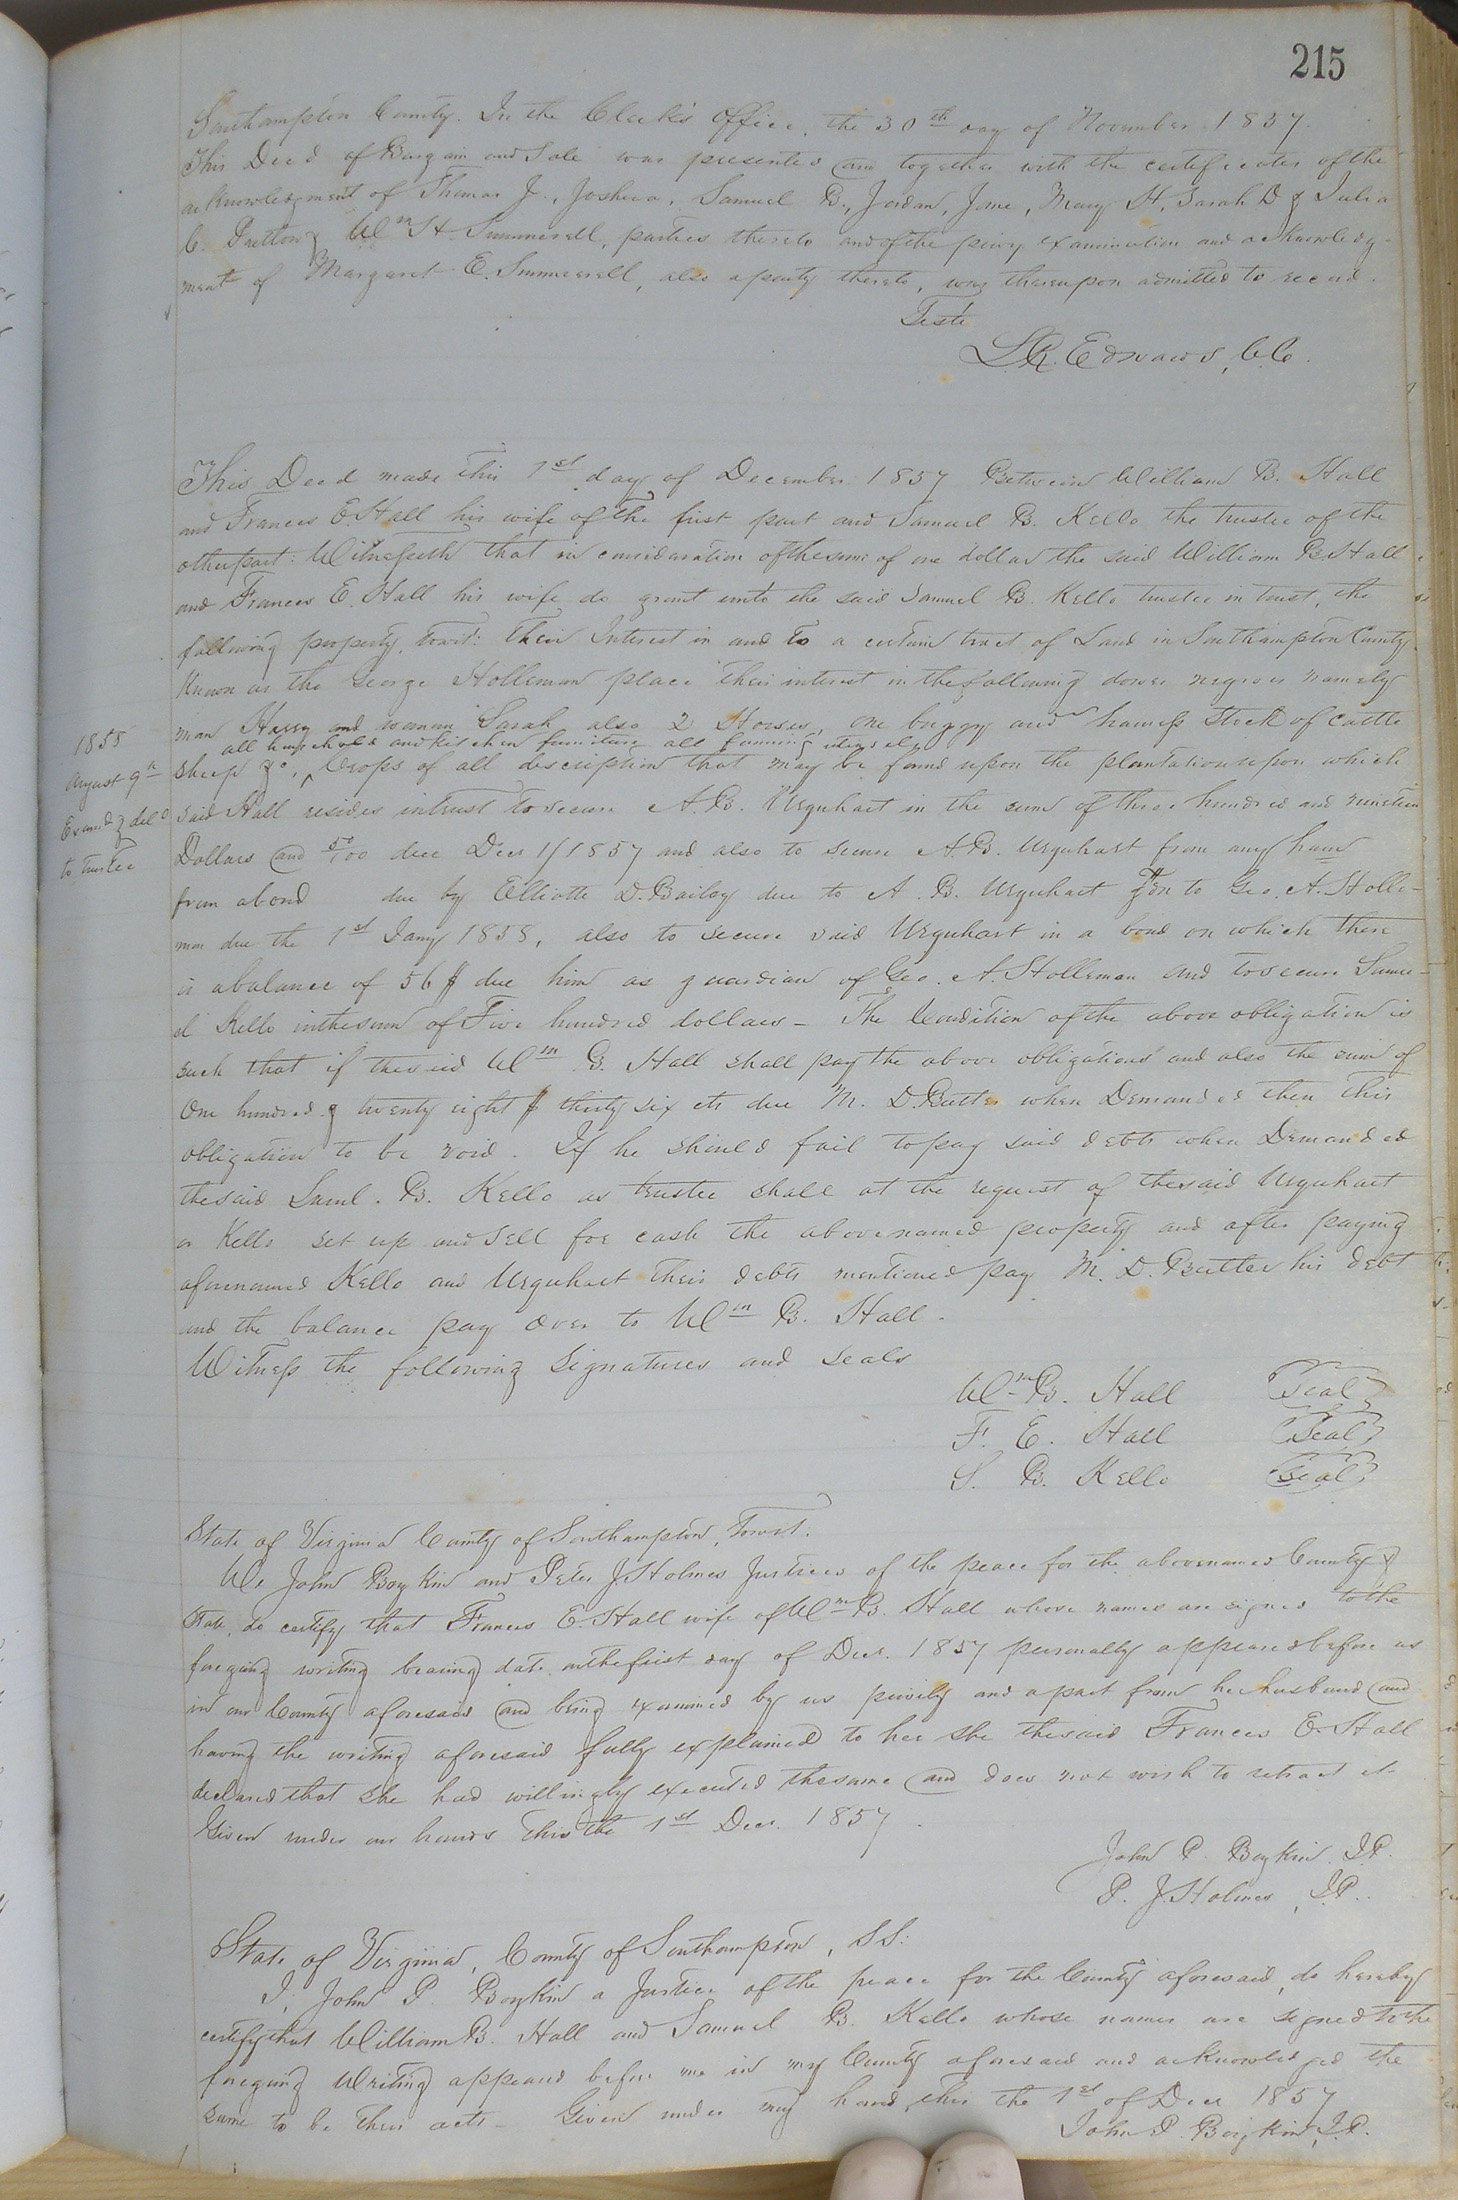 215
Southampton County. In the Clerk's Office, the 30th day of November 1857.
This Deed of Bargain and Sale was presented and together with the certificates of the
acknowledgment of Thomas J., Joshua, Samuel B., Jordan, Jane, Mary H, Sarah D & Julia
C. Pretlow & Wm H. Summerell, parties thereto and of the privy examination and acknowledg-
ment of Margaret E. Summerell, also a party thereto, was thereupon admitted to record.
Teste
L. R. Edwards, C.C.
This Deed made this 1st day of December 1857 Between William B. Hall
and Frances E. Hall his wife of the first part and Samuel B. Kello the trustee of the
other part: Witnesseth that in consideration of the sum of one dollar the said William B. Hall
and Frances E. Hall his wife do grant unto the said Samuel B. Kello trustee in trust, the
following property, towit: Their Interest in and to a certain tract of Land in Southampton County
Known as the George Holleman place their interest in the following dower negroes namely
man Harry and woman Sarah also 2 Horses, one buggy and harness Stock of cattle
all household and kitchen furniture all farming utensels
sheep &c, Crops of all description that may be found upon the plantation upon which
1858
August 9th
Examd & deld
to trustee
said Hall resides in trust to secure A. B. Urquhart in the sum of three hundred and nineteen
Dollars and 50/100 due Decr 1/1857 and also to secure A. B. Urquhart from any harm
from a bond due by Elliotte D. Bailey due to A. B. Urquhart Gdn to Geo. A. Holle-
man due the 1st Jany 1858, also to secure said Urquhart in a bond on which there
is a balance of 56 $ due him as guardian of Geo. A. Holleman and to secure Samu-
el Kello in the sum of Five hundred dollars – The Condition of the above obligation is
such that if the said Wm B. Hall shall pay the above obligations and also the sum of
One hundred & twenty eight $ thirty six cts due M. D. Butler when Demanded then this
obligation to be void. If he should fail to pay said debts when Demanded
the said Saml. B. Kello as trustee shall at the request of the said Urquhart
or Kello set up and sell for cash the above named property and after paying
aforenamed Kello and Urquhart their debts mentioned pay M. D. Butler his debt
and the balance pay over to Wm B. Hall.
Witness the following Signatures and seals
Wm B. Hall (Seal)
F. E. Hall (Seal)
S. B. Kello (Seal)
State of Virginia County of Southampton, Towit.
We John Boykin and Peter J. Holmes Justices of the peace for the abovenamed County &
State, do certify that Frances E. Hall wife of Wm B. Hall whose names are signed to the
foregoing writing bearing date on the first day of Decr. 1857 personally appeared before us
in our County aforesaid and being examined by us privily and apart from her husband and
having the writing aforesaid fully explained to her she the said Frances E. Hall
declared that she had willingly executed the same and does not wish to retract it
Given under our hands this the 1st Decr. 1857.
John P. Boykin J.P.
P. J. Holmes, J.P.
State of Virginia, County of Southampton, SS:
I, John P. Boykin a Justice of the peace for the County aforesaid, do hereby
certify that William B. Hall and Samuel B. Kello whose names are signed to the
foregoing Writing appeared before me in my County aforesaid and acknowledged the
same to be their acts – Given under my hand this the 1st of Decr 1857
John P. Boykin, J.P.